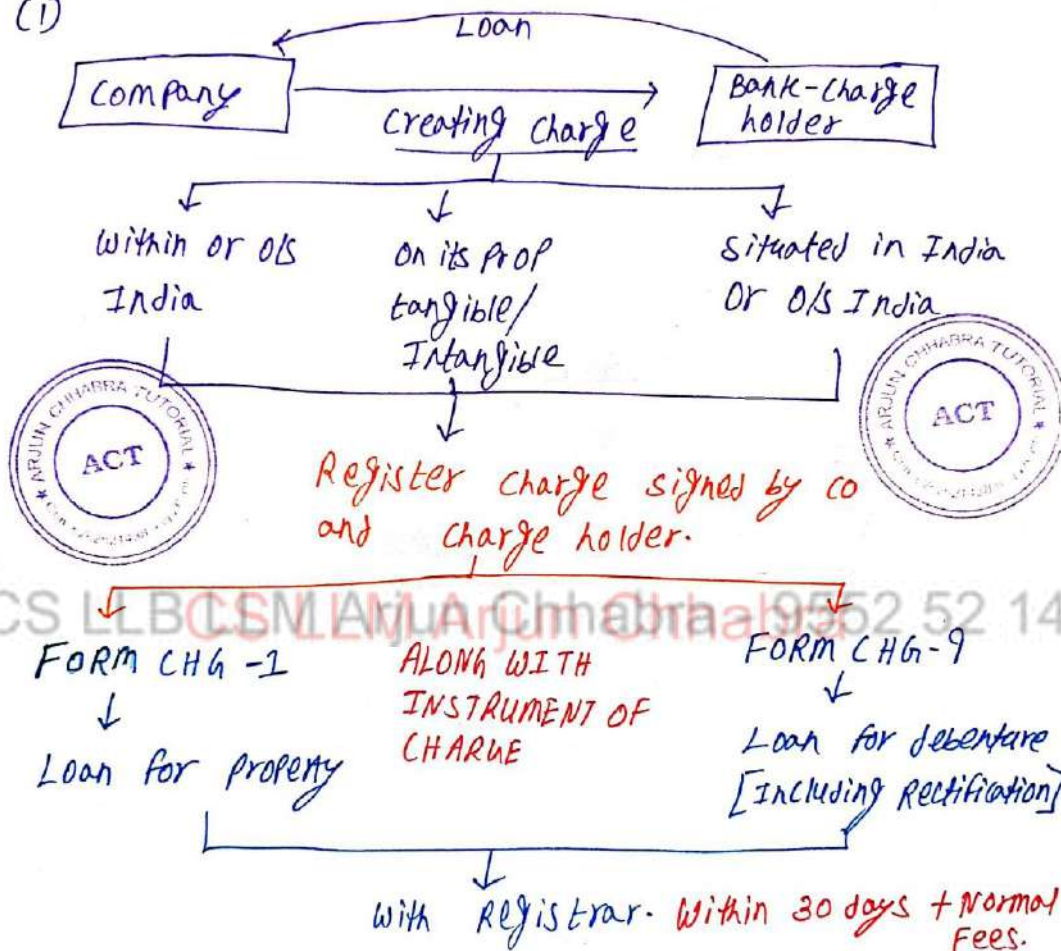 (1)
Loan
Company
Bank-Charge
holder
Creating Charge
Within or O/S
India
On its Prop
tangible/
Intangible
situated in India
Or O/S India
ARJUN CHHABRA TUTORIAL
ACT
ARJUN CHHABRA TUTORIAL
ACT
Register charge signed by co
and charge holder.
CS LLB LLM Arjun Chhabra - 9552 52 14
CS LLM Arjun Chhabra
FORM CHG -1
ALONG WITH
INSTRUMENT OF
CHARGE
FORM CHG-9
Loan for property
Loan for debenture
[Including Rectification]
with Registrar. Within 30 days + Normal
Fees.